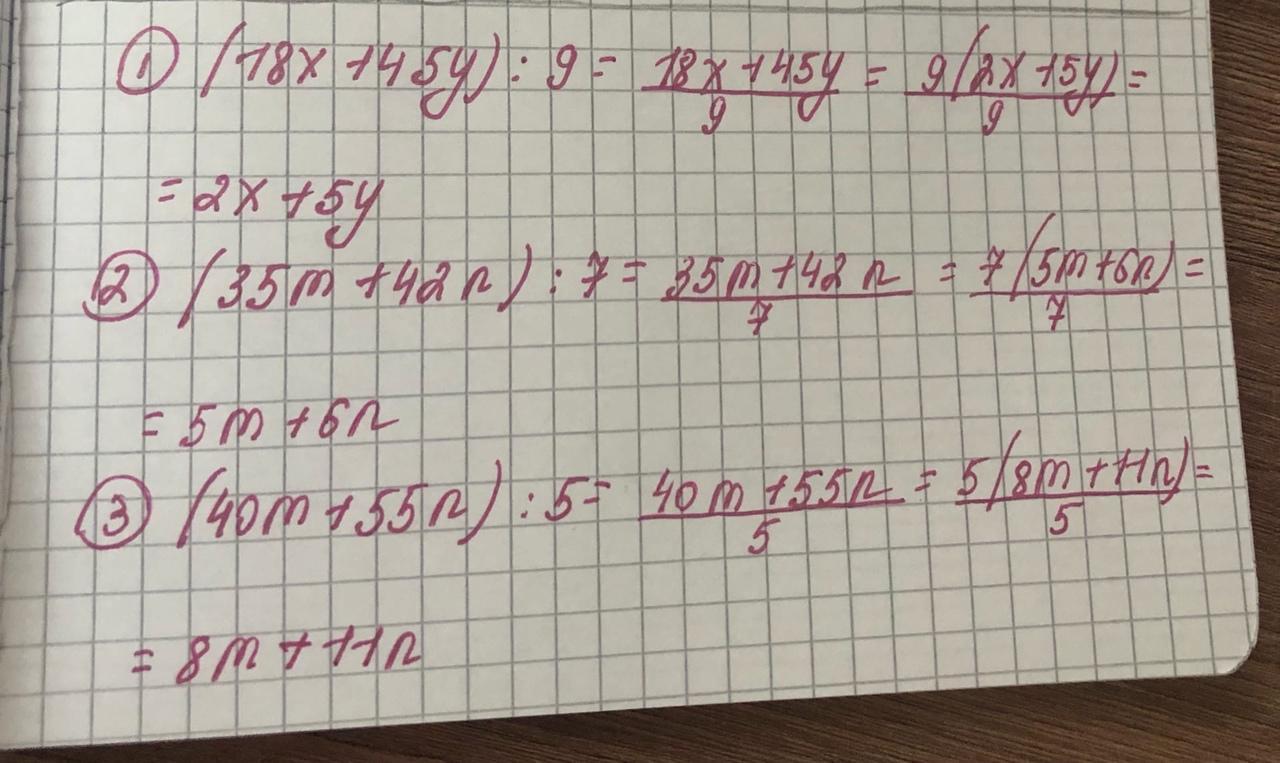 ① (18x+45y):9= \frac{18x+45y}{9} = \frac{9(2x+5y)}{9} =
=2x+5y
② (35m+42n):7= \frac{35m+42n}{7} = \frac{7(5m+6n)}{7} =
=5m+6n
③ (40m+55n):5= \frac{40m+55n}{5} = \frac{5(8m+11n)}{5} =
=8m+11n